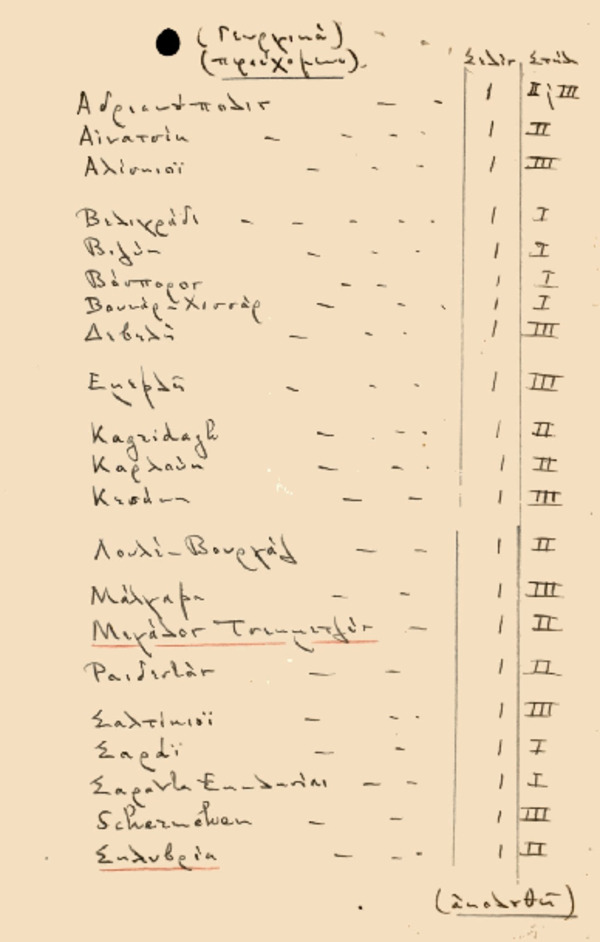 (Γεωργικά)
(προϊχόμενα).
Σελίς Στήλ
Αδριανόπολις — - 1 II; III
Αίνατσίκ - - - - 1 II
Αλίσκιοϊ - - - 1 III
Βελιγράδι - - - - - 1 I
Βιζύη - - - 1 I
Βόσπορος - - 1 I
Βουνάρ-Χισσάρ - - - 1 I
Δεβελή - - - 1 III
Εκερλή - - - 1 III
Kagridagh - - - 1 II
Καρλαύκ - - - 1 II
Κεσάνη - - 1 III
Λουλέ-Βουργάζ - - 1 II
Μάλγαρα - - 1 III
Μεγάλος Τσεκμετζές - 1 II
Ραιδεστός - - 1 II
Σαλτίκιοϊ - - - 1 III
Σαράϊ - - 1 I
Σαράντα Εκκλησίαι - - 1 I
Scherneken - - 1 III
Σηλυβρία - - - 1 II
(ἀκολουθεῖ)